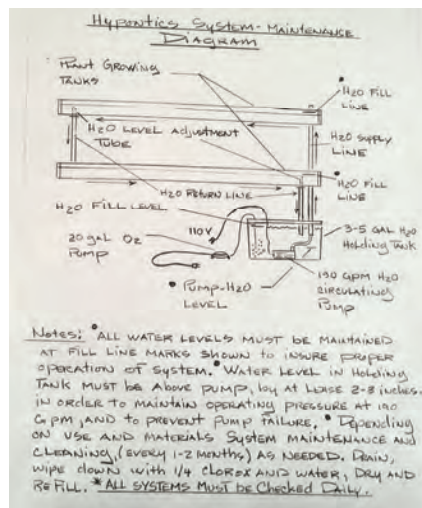 Hypontics System-Maintenance
Diagram
Plant Growing
Tanks
H2O Fill
Line
H2O Level Adjustment
Tube
H2O Supply
Line
H2O Return Line
H2O Fill
Line
H2O Fill Level
110V
3-5 GAL H2O
Holding Tank
20 gal O2
Pump
190 GPM H2O
Circulating
Pump
Pump-H2O
Level
Notes: *All water levels must be maintained
at fill line marks shown to insure proper
operation of system. *Water level in Holding
Tank must be above pump, by at lease 2-3 inches.
in order to maintain operating pressure at 190
G.pm, and to prevent pump failure. *Depending
on use and materials System maintenance and
cleaning, (every 1-2 months) as needed. Drain,
wipe down with 1/4 Clorox and water, Dry and
Refill. *All systems must be Checked Daily.